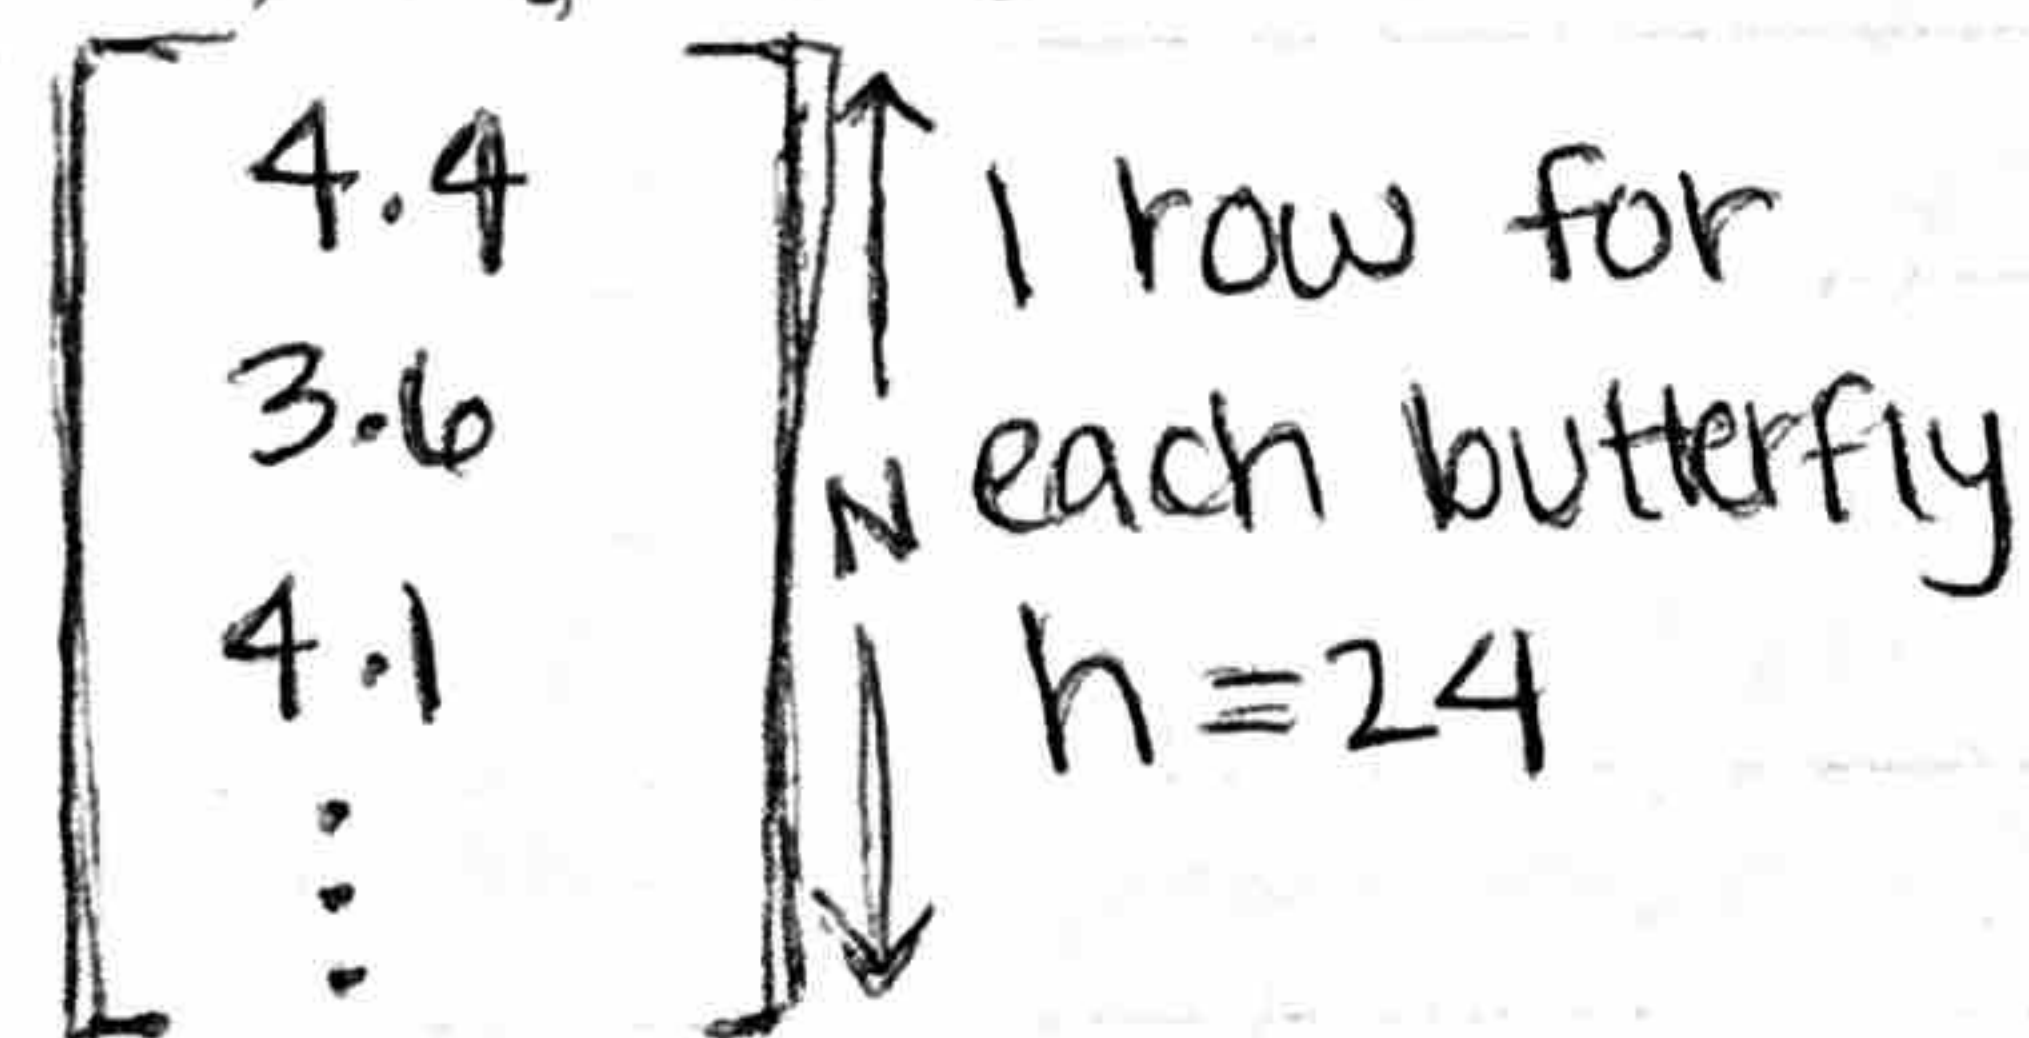 4.4
3.6
4.1
1 row for
N each butterfly
n = 24